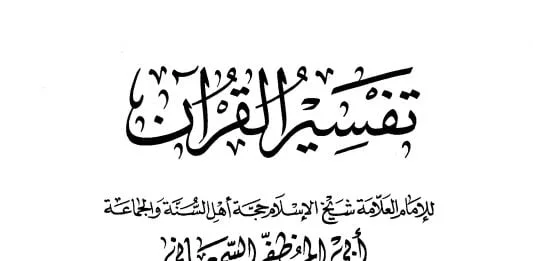 تَفْسِيرُ القُرْآن
للإمام العلّامة شيخ الإسلام حجّة أهل السُّنة والجماعة
أبي المُظفَّر السَّمعاني